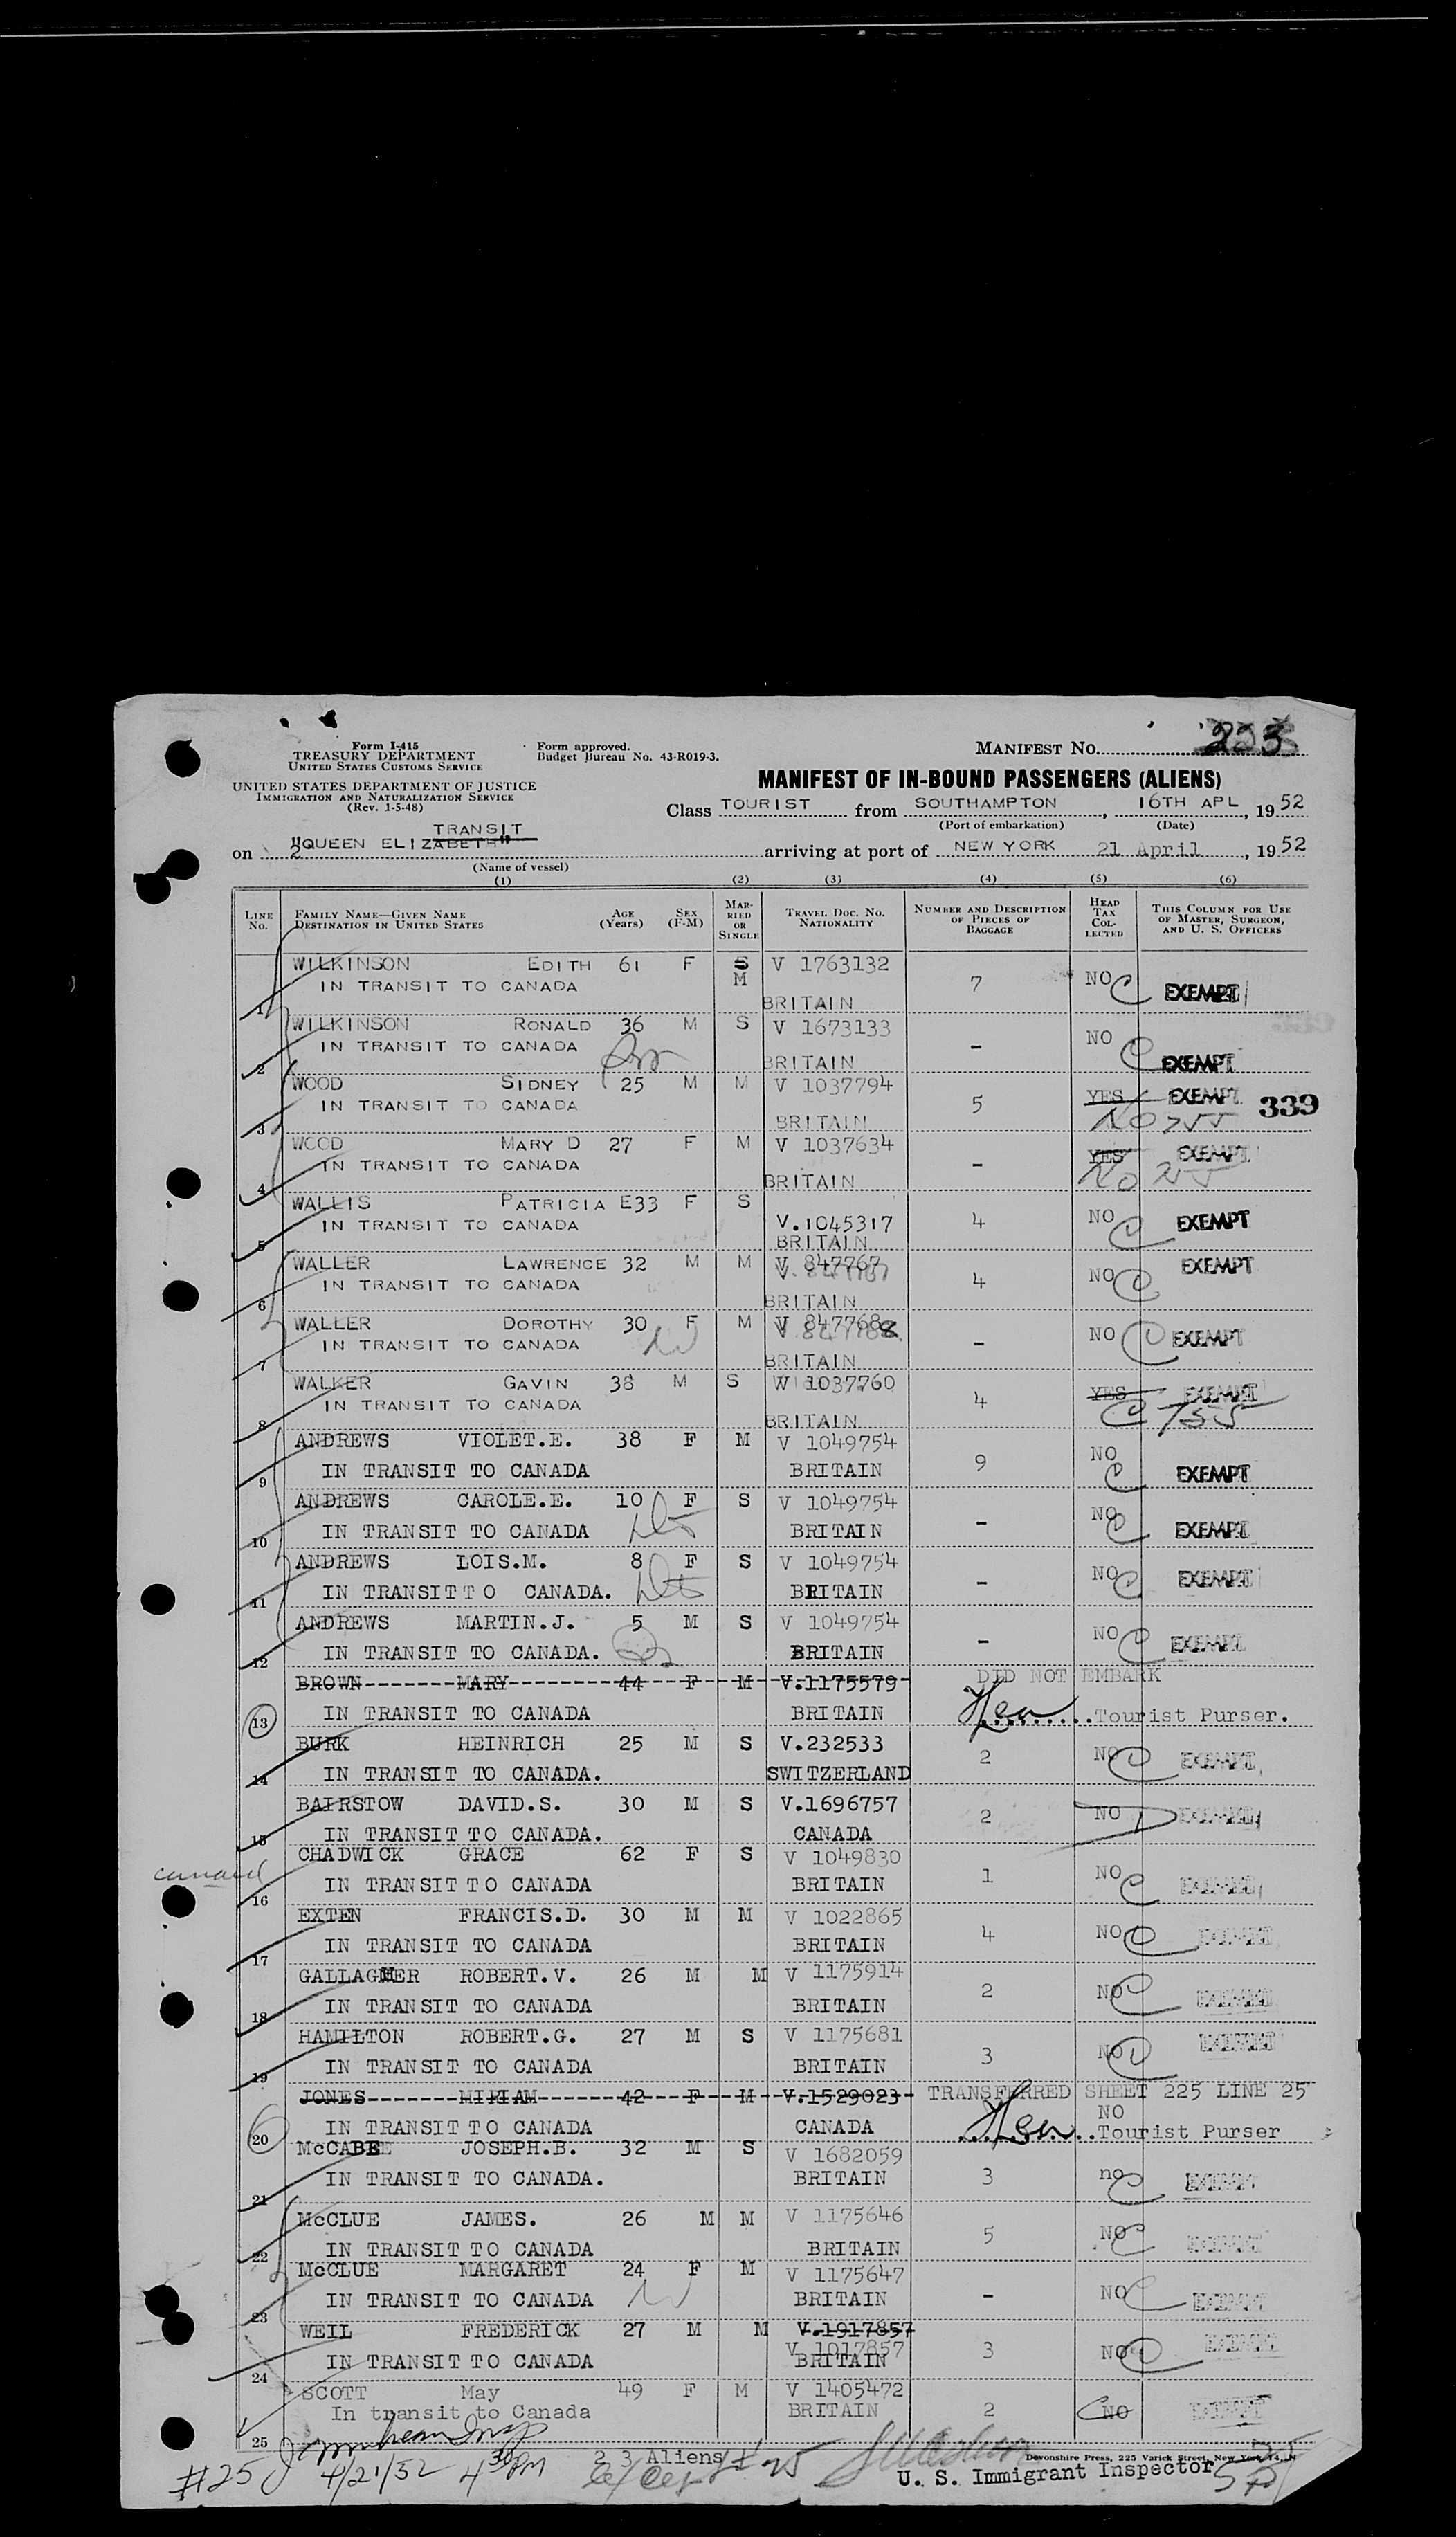 Form I-415
TREASURY DEPARTMENT
UNITED STATES CUSTOMS SERVICE
UNITED STATES DEPARTMENT OF JUSTICE
IMMIGRATION AND NATURALIZATION SERVICE
(Rev. 1-5-48)
Form approved.
Budget Bureau No. 43-R019-3.
MANIFEST NO.
MANIFEST OF IN-BOUND PASSENGERS (ALIENS)
Class TOURIST from SOUTHAMPTON, 16TH APL, 19 52
(Port of embarkation) (Date)
TRANSIT
on "QUEEN ELIZABETH" arriving at port of NEW YORK 21 April, 19 52
(Name of vessel)
(1) (2) (3) (4) (5) (6)
LINE NO. FAMILY NAME—GIVEN NAME DESTINATION IN UNITED STATES AGE (Years) SEX (F-M) MARRIED OR SINGLE TRAVEL DOC. NO. NATIONALITY NUMBER AND DESCRIPTION OF PIECES OF BAGGAGE HEAD TAX COLLECTED THIS COLUMN FOR USE OF MASTER, SURGEON, AND U. S. OFFICERS
WILKINSON EDITH 61 F S V 1763132
IN TRANSIT TO CANADA M 7 NO C EXEMPT
1 BRITAIN
WILKINSON RONALD 36 M S V 1673133
IN TRANSIT TO CANADA - NO C
2 BRITAIN EXEMPT
WOOD SIDNEY 25 M M V 1037794
IN TRANSIT TO CANADA 5 YES EXEMPT 339
3 BRITAIN NO
WOOD MARY D 27 F M V 1037634
IN TRANSIT TO CANADA - YES EXEMPT
4 BRITAIN NO
WALLIS PATRICIA E 33 F S
IN TRANSIT TO CANADA V.1045317 4 NO C EXEMPT
5 BRITAIN
WALLER LAWRENCE 32 M M V 847767 EXEMPT
IN TRANSIT TO CANADA 4 NO C
6 BRITAIN
WALLER DOROTHY 30 F M V 847768
IN TRANSIT TO CANADA - NO C EXEMPT
7 BRITAIN
WALKER GAVIN 38 M S W 1037760
IN TRANSIT TO CANADA 4 YES EXEMPT
8 BRITAIN C
ANDREWS VIOLET.E. 38 F M V 1049754
9 IN TRANSIT TO CANADA BRITAIN 9 NO C EXEMPT
ANDREWS CAROLE.E. 10 F S V 1049754
10 IN TRANSIT TO CANADA BRITAIN - NO C EXEMPT
ANDREWS LOIS.M. 8 F S V 1049754
11 IN TRANSIT TO CANADA. BRITAIN - NO C EXEMPT
ANDREWS MARTIN.J. 5 M S V 1049754
12 IN TRANSIT TO CANADA. BRITAIN - NO C EXEMPT
BROWN--------MARY---------44---F---M--V.1175579- DID NOT EMBARK
13 IN TRANSIT TO CANADA BRITAIN Tourist Purser.
BURK HEINRICH 25 M S V.232533
14 IN TRANSIT TO CANADA. SWITZERLAND 2 NO C EXEMPT
BAIRSTOW DAVID.S. 30 M S V.1696757
15 IN TRANSIT TO CANADA. CANADA 2 NO EXEMPT
CHADWICK GRACE 62 F S V 1049830
16 IN TRANSIT TO CANADA BRITAIN 1 NO C EXEMPT
EXTEN FRANCIS.D. 30 M M V 1022865
17 IN TRANSIT TO CANADA BRITAIN 4 NO C EXEMPT
GALLAGHER ROBERT.V. 26 M M V 1175914
18 IN TRANSIT TO CANADA BRITAIN 2 NO C EXEMPT
HAMILTON ROBERT.G. 27 M S V 1175681
19 IN TRANSIT TO CANADA BRITAIN 3 NO C EXEMPT
JONES-------MIRIAM------42---F---M--V.1529023- TRANSFERRED SHEET 225 LINE 25
NO
20 IN TRANSIT TO CANADA CANADA Tourist Purser
McCABE JOSEPH.B. 32 M S V 1682059
21 IN TRANSIT TO CANADA. BRITAIN 3 no C EXEMPT
McCLUE JAMES. 26 M M V 1175646
22 IN TRANSIT TO CANADA BRITAIN 5 NO C EXEMPT
McCLUE MARGARET 24 F M V 1175647
23 IN TRANSIT TO CANADA BRITAIN - NO C EXEMPT
WEIL FREDERICK 27 M M V.1917857
V 1017857
24 IN TRANSIT TO CANADA BRITAIN 3 NO C EXEMPT
SCOTT May 49 F M V 1405472
25 In transit to Canada BRITAIN 2 NO EXEMPT
#25 4/21/52 4 30 PM 2 3 Aliens
Devonshire Press, 225 Varick Street, New York 14, N
U. S. Immigrant Inspector